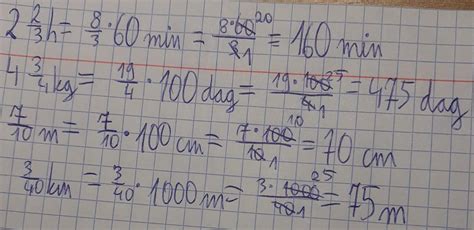 2 2/3 h = 8/3 · 60 min = 8·60 20/3 1 = 160 min
4 3/4 kg = 19/4 · 100 dag = 19·100 25/4 1 = 475 dag
7/10 m = 7/10 · 100 cm = 7·100 10/10 1 = 70 cm
3/40 km = 3/40 · 1000 m = 3·1000 25/40 1 = 75 m